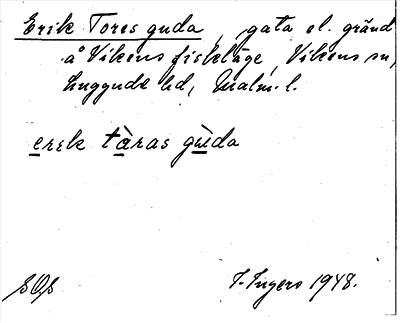 Erik Tores guda, gata el. gränd
å Vikens fiskläge, Vikens sn,
Luggude hd, Malm. l.
erɛk tàras gùda
I. Ingers 1948.